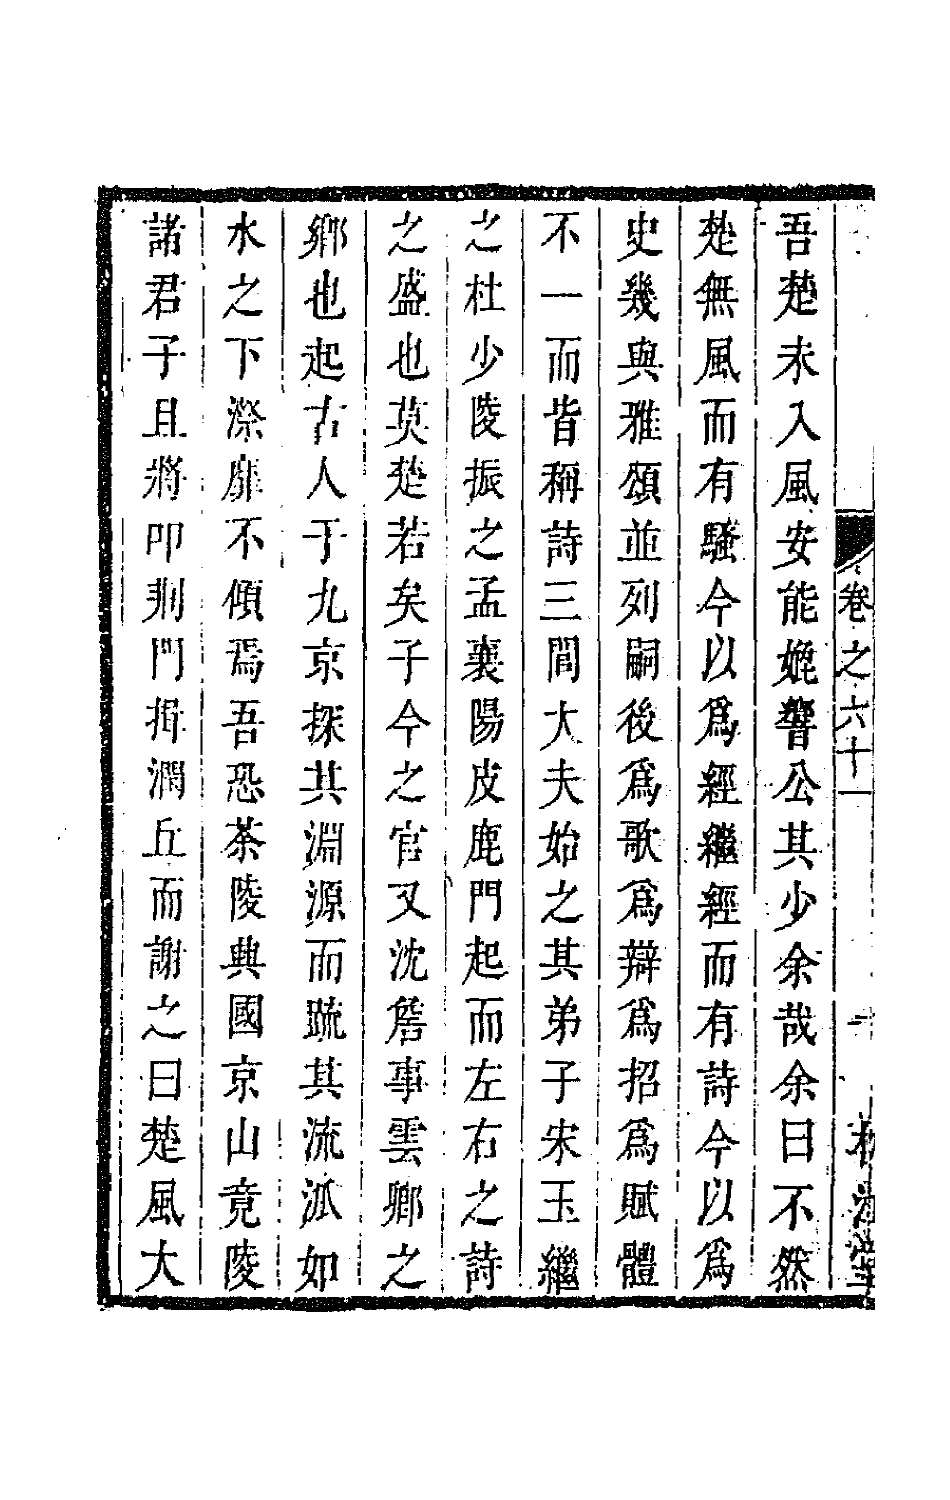 卷之六十一
吾楚未入風安能媲響公其少余哉余曰不然
楚無風而有騷今以爲經繼經而有詩今以爲
史幾與雅頌並列嗣後爲歌爲辯爲招爲賦體
不一而皆稱詩三閭大夫始之其弟子宋玉繼
之杜少陵振之孟襄陽皮鹿門起而左右之詩
之盛也莫楚若矣子今之官又沈詹事雲卿之
鄉也起古人于九京探其淵源而疏其流派如
水之下深靡不傾焉吾恐茶陵典國京山竟陵
諸君子且將叩荆門揖澗丘而謝之曰楚風大